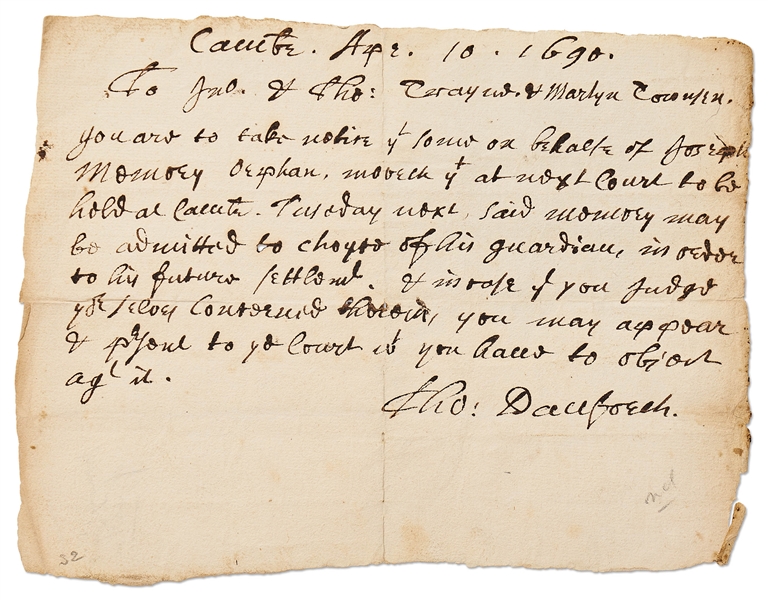 Cambr. Apr. 10. 1690.
To Jno. & Tho: Twayne. & Martyn Townsen.
you are to take notice yt some on behalfe of Joseph
Memory Orphan, moveth yt at next Court to be
held at Cambr. Tuseday next, said memory may
be admitted to choyse of his guardian, in order
to his future settlemt. & in case yt you Judge
yor selves Concerned therein, you may appear
& prsent to ye Court wt you have to object
agt it.
Tho: Danforth.
32